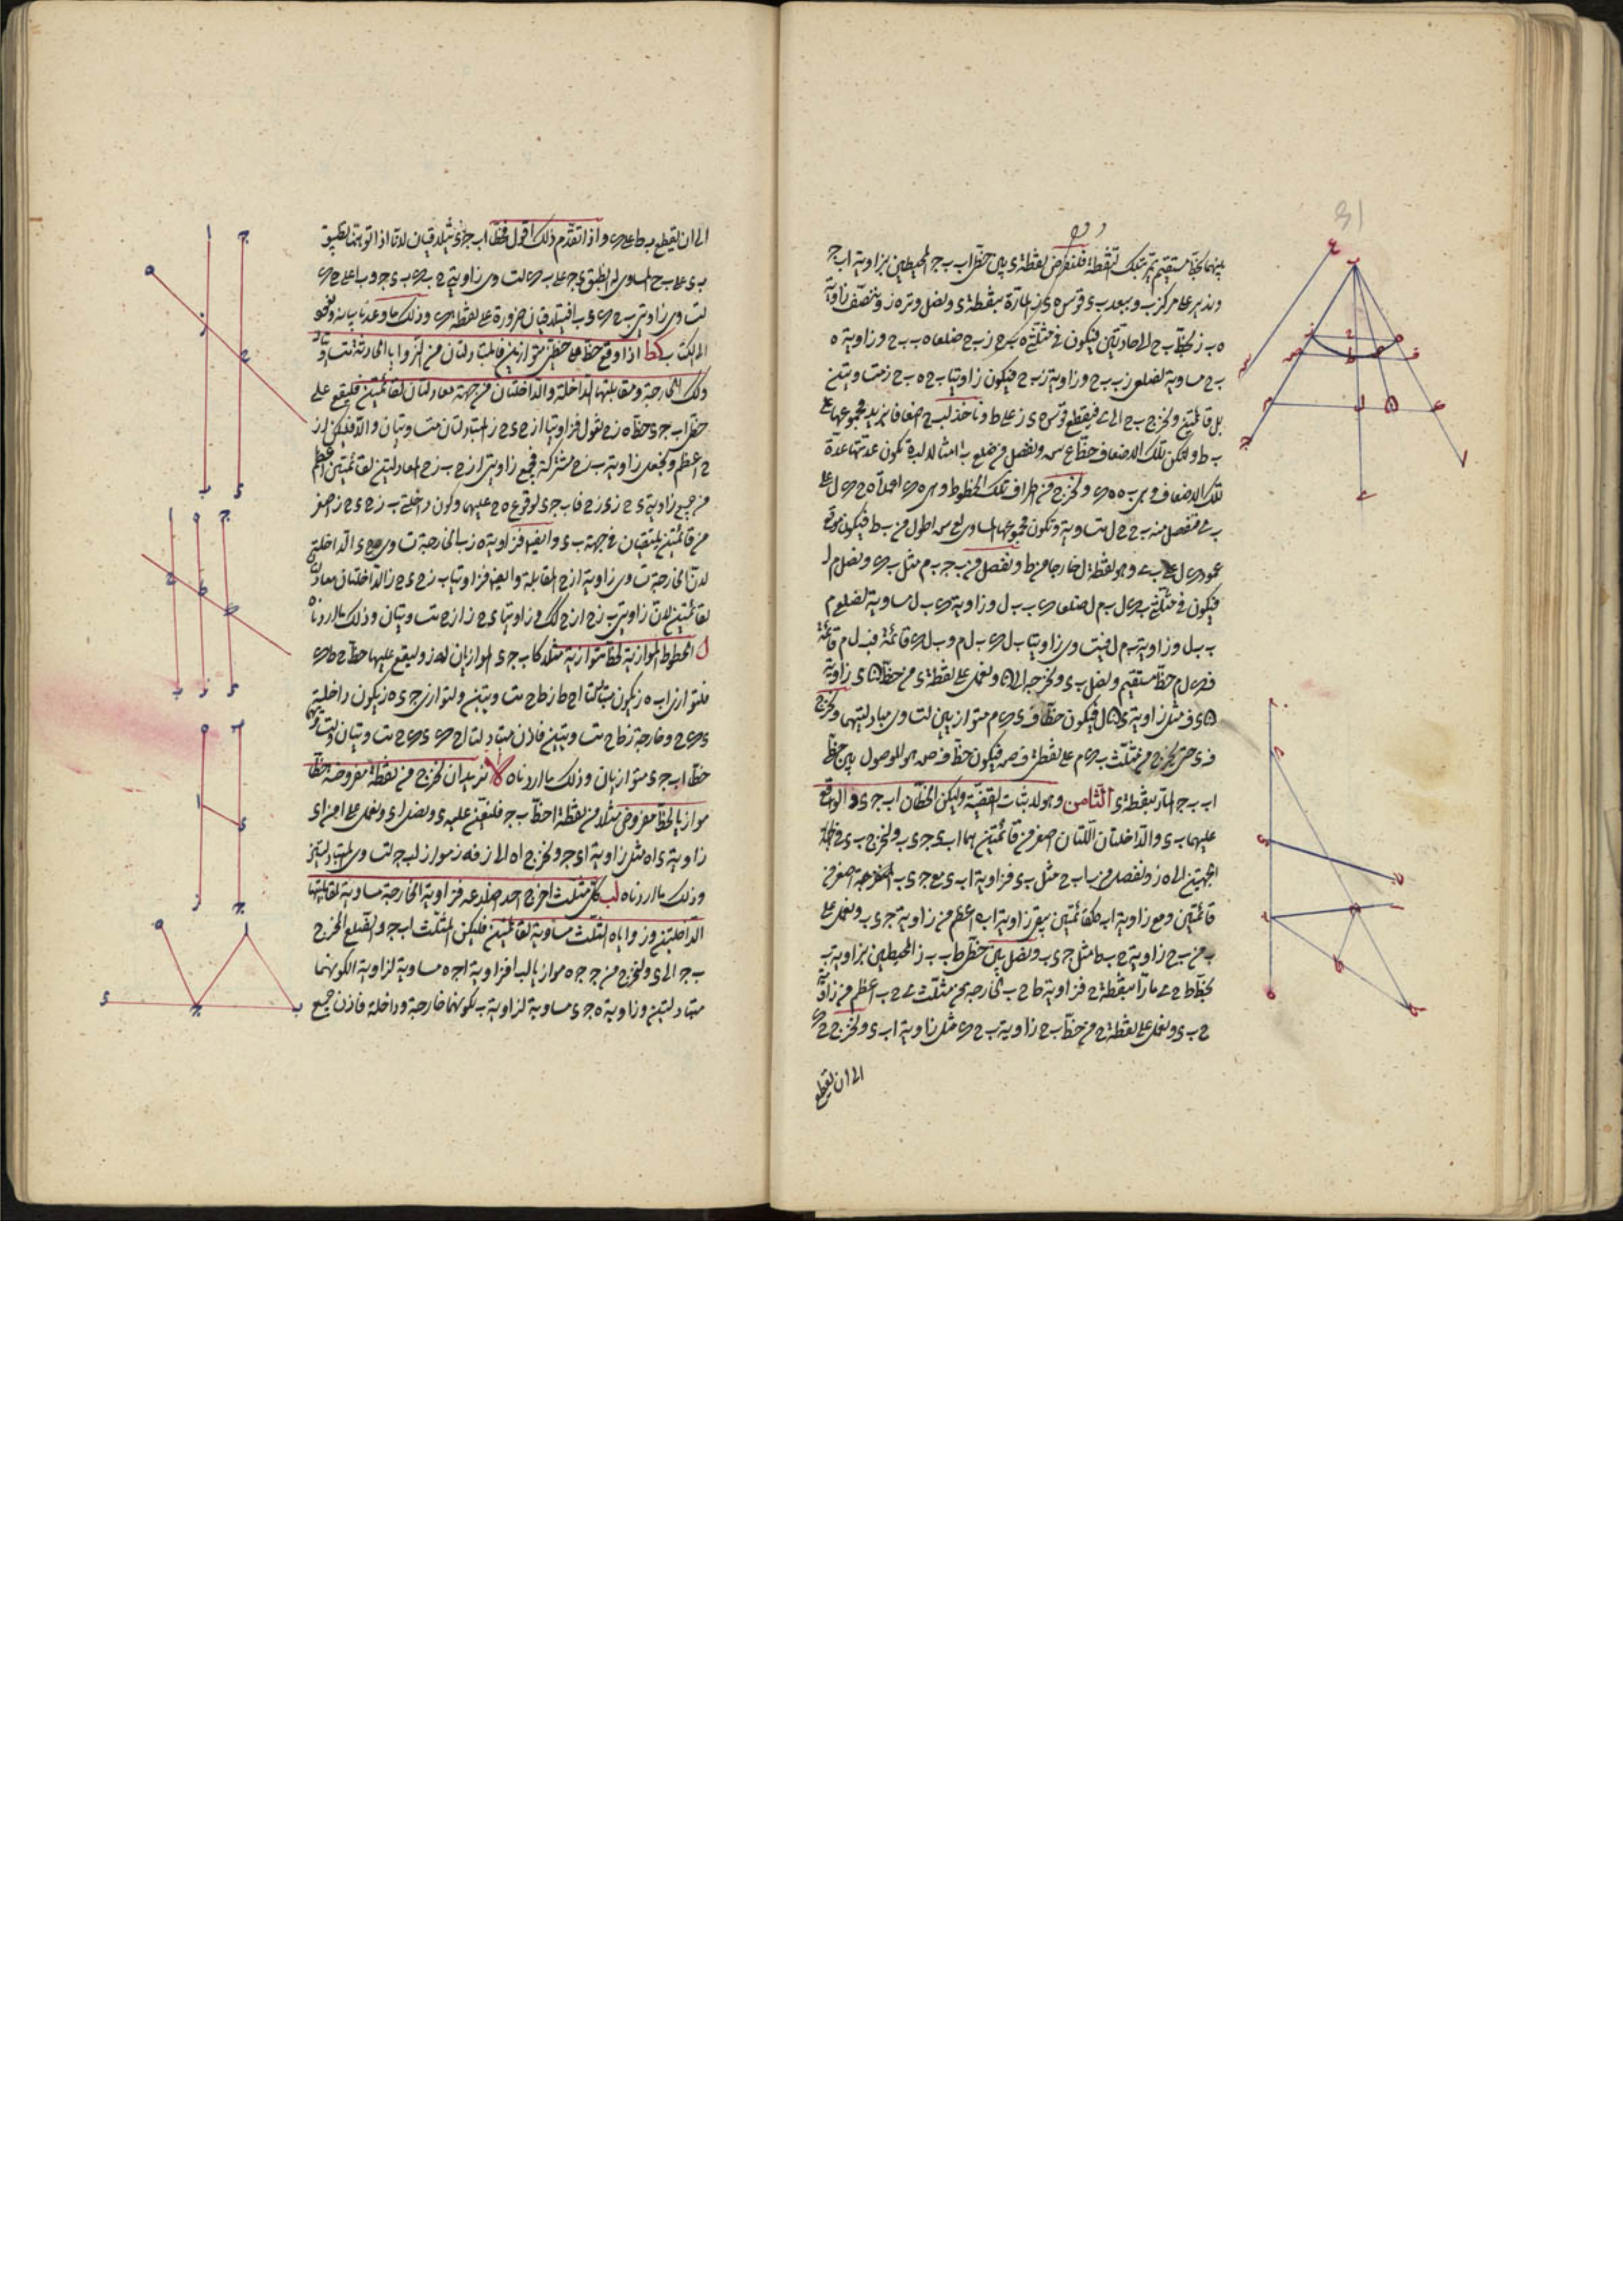 بينهما بخط مستقيم يمر بتلك النقطة فلنفرض نقطة ى بين خطى اب ب جـ المحيطين بزاوية اب جـ
وندير على مركز ب وببعد ب ى قوس ه ى ز المارة بنقطة ى ونصل وتر ه ز وننصف زاوية
ه ب ز بخط ب ح الحادثتين فيكون فى مثلثى ه ب ح ز ب ح ضلعا ه ب ب ح وزاوية ه
ب ح مساوية لضلعى ز ب ب ح وزاوية ز ب ح فيكون زاويتا ب ح ه ب ح ز متساويتين
بل قائمتين ونخرج ب ح الى فيقطع قوس ه ى ز على ط وناخذ لب ح اضعافا يزيد مجموعها على
ب ط ولتكن تلك الاضعاف خط ع س ونفصل من ضلع ب ا امثالا له ب ه تكون عدتها عدة
تلك الاضعاف وهى ب ه ه ى ونخرج من اطراف تلك الخطوط وهى ه ى اعمدة ه ح ى ل على
ب منفصل منه ب ح ح ل متساوية وتكون مجموعها المساوى لع س اطول من ب ط فيكون موقع
عمود ى ل على ب وهو نقطة ل خارجا من ط ونفصل من ب جـ ب م مثل ب ى ونصل م ل
فيكون فى مثلثى ب ى ل ب م ل ضلعا ى ب ب ل وزاوية ى ب ل مساوية لضلعى م
ب ب ل وزاوية م ب ل فتساوى زاويتا ب ل ى ب ل م وب ل ى قائمة فب ل م قائمة
فى ل م خط مستقيم ونصل ب ى ونخرجه الى ونعمل على نقطة ى من خط ى زاوية
ى ف مثل زاوية ى ل فيكون خطا ف ى ى م متوازيين لتساوى متبادلتيهما ونخرج
ف ى حتى يخرج من مثلث ب ى م على نقطتى ف ص فيكون خط ف ص هو الموصول بين خطى
اب ب جـ المار بنقطة ى الثامن وهو لاثبات القضية وليكن الخطان اب جـ ى والواقع
عليهما ب ى والداخلتان اللتان اصغر من قائمتين هما اب ى جـ ى ب ونخرج ب ى فى كلتا
الجهتين الى ه ز ونفصل من ب ا ب ح مثل ب ى فزاوية اب ى مع جـ ى ب اصغر من
قائمتين ومع زاوية اب ه كقائمتين يبقى زاوية اب ه اعظم من زاوية جـ ى ب ونعمل على
ب من ب ح زاوية ح ب ط مثل جـ ى ب ونصل بين خطى ط ب ب ز المحيطين بزاوية ب
بخط ط ح مارا بنقطة ح فزاوية ط ح ب الخارجة من مثلث ح ب اعظم من زاوية
ح ب ى ونعمل على نقطة ح من خط ب ح زاوية ب ح ى مثل زاوية اب ى ونخرج ح ى
الى ان يقطع
الى ان يقطع ب ط على ى واذا تقدم ذلك اقول فخطا اب جـ ى يتلاقيان لانا اذا توهمنا تطبيق
ب ى على ب ح المساوى له انطبق ى جـ على ب ى لتساوى زاويتى ح ب ى ب ى جـ وب ا على ح ى
لتساوى زاويتى ب ح ى ى ب ا فيتلاقيان ضرورة على نقطة ى وذلك ما وعدنا بيانه ونعود
الى الكتاب كط اذا وقع خط على خطين متوازيين فالمتبادلتان من الزوايا الحادثة متساويتان
وكذلك الخارجة ومقابلتها الداخلة والداخلتان من جهة معادلتان لقائمتين فليقع على
خطى اب جـ ى خط ه ز ح نقول فزاويتا ا ز ح ى ح ز المتبادلتان متساويتان والا فليكن ا ز
ح اعظم ونجعل زاوية ب ز ح مشتركة فجميع زاويتى ا ز ح ب ز ح المعادلتين لقائمتين اعظم
من جميع زاوية ى ح ز ب ز ح فاب جـ ى لوقوع ه ح عليهما وكون داخلتى ب ز ح ى ح ز اصغر
من قائمتين يلتقيان فى جهة ب ى وايضا فزاوية ه ز ب الخارجة تساوى ز ح ى الداخلة
لان الخارجة تساوى زاوية ا ز ح المقابلة وايضا فزاويتا ب ز ح ى ح ز الداخلتان معادلتان
لقائمتين لان زاويتى ب ز ح ا ز ح كذلك وزاويتا ى ح ز ا ز ح متساويتان وذلك ما اردناه
ل الخطوط الموازية لخط متوازية مثلا كاب جـ ى الموازيان له ز وليقع عليها خط ح ط ى
فلتوازى اب ه ز يكون متبادلتا ا ح ط ز ط ح متساويتين ولتوازى جـ ى ه ز يكون داخلة
ى ى ح وخارجة ز ط ح متساويتين فاذن متبادلتا ا ح ى ى ى ح متساويتان ولتساويهما
خطا اب جـ ى متوازيان وذلك ما اردناه لا نريد ان نخرج من نقطة مفروضة خطا
موازيا لخط مفروض مثلا من نقطة ا خط ب جـ فلنعين عليه ى ونصل ا ى ونعمل على ا من ا ى
زاوية ى ا ه مثل زاوية ا ى جـ ونخرج ا ه الى ز فه ز مواز لب جـ لتساوى المتبادلتين
وذلك ما اردناه لب كل مثلث اخرج احد اضلاعه فزاويته الخارجة مساوية لمقابلتيها
الداخلتين وزواياه الثلث مساوية لقائمتين فليكن المثلث اب جـ والضلع المخرج
ب جـ الى ى ونخرج من جـ جـ ه موازيا لب ا فزاوية ا جـ ه مساوية لزاوية ا لكونهما
متبادلتين وزاوية ه جـ ى مساوية لزاوية ب لكونهما خارجة وداخلة فاذن جميع